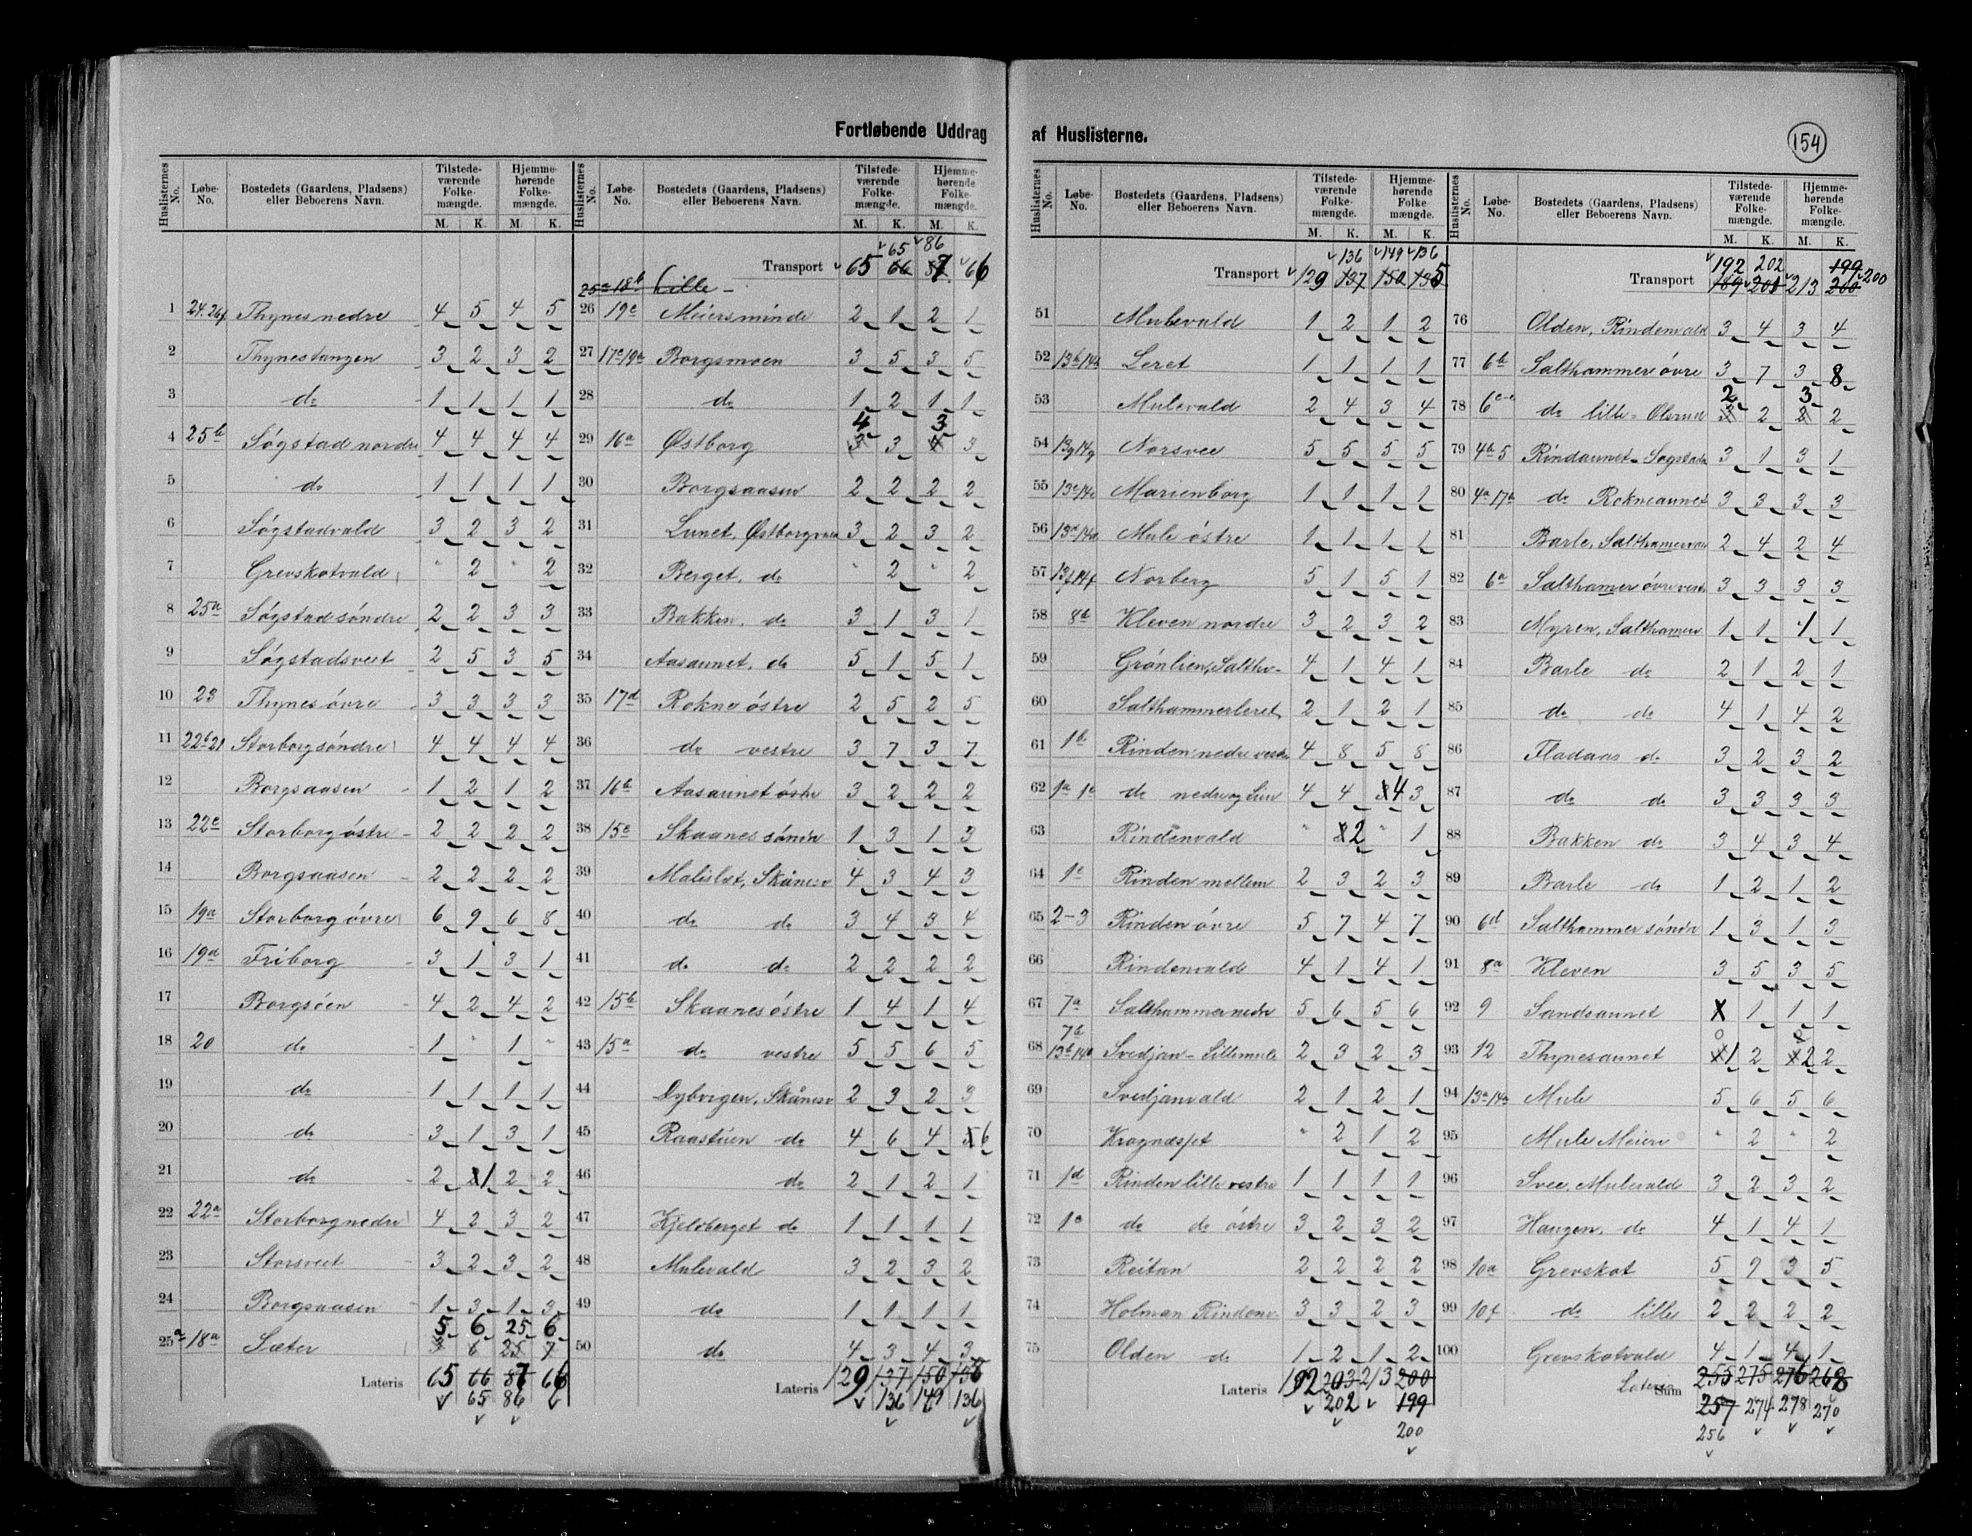 Fortløbende Uddrag af Huslisterne.
154
Huslisternes No. Løbe-No. Bostedets (Gaardens, Pladsens) eller Beboerens Navn. Tilstedeværende Folkemængde. M. K. Hjemmehørende Folkemængde. M. K.
1 24.26f Thynes nedre 4 5 4 5
2 Thynestangen 3 2 3 2
3 do 1 1 1 1
4 25b Søgstad nordre 4 4 4 4
5 do 1 1 1 1
6 Søgstadvald 3 2 3 2
7 Grevskotvald " 2 " 2
8 25a Søgstad søndre 2 2 3 3
9 Søgstadsveet 2 5 3 5
10 23 Thynes øvre 3 3 3 3
11 22b21 Storborg søndre 4 4 4 4
12 Borgsaasen 1 2 1 2
13 22c Storborg østre 2 2 2 2
14 Borgsaasen 2 2 2 2
15 19a Storborg øvre 6 9 6 8
16 19a Friborg 3 1 3 1
17 Borgsøen 4 2 4 2
18 20 do 1 " 1 "
19 do 1 1 1 1
20 do 3 1 3 1
21 do 2 1 2 2
22 22a Storborg nedre 4 2 3 2
23 Storsveet 3 2 3 2
24 Borgsaasen 1 3 1 3
5 6 25 6
25a 18a Sæter 6 25 7
Lateris 65 66 87 66
65 86
65 86
25a 18b Lille
Transport 65 66 87 66
26 19c Meiersminde 2 1 2 1
27 17c19b Borgsmoen 3 5 3 5
28 do 1 2 1 1
4 3
29 16a Østborg 3 3 4 3
30 Borgsaasen 2 2 2 2
31 Lunet, Østborgvald 3 2 3 2
32 Berget, do " 2 " 2
33 Bakken, do 3 1 3 1
34 Aasaunet, do 5 1 5 1
35 17d Rokne østre 2 5 2 5
36 do vestre 3 7 3 7
37 16b Aasaunet østre 3 2 2 2
38 15c Skaanes søndr 1 3 1 3
39 Malislet, Skånesv 4 3 4 3
40 do do 3 4 3 4
41 do do 2 2 2 2
42 15b Skaanes østre 1 4 1 4
43 15a do vestre 5 5 6 5
44 Dybvigen, Skånesv 2 3 2 3
45 Raastuen do 4 6 4 6
46 do 2 1 2 1
47 Kjelsberget do 1 1 1 1
48 Mulevald 3 2 3 2
49 do 1 1 1 1
50 do 4 3 4 3
Lateris 129 137 150 136
136 149 136
136 149 136
Transport 129 137 150 135
51 Mulevald 1 2 1 2
52 13b14b Leret 1 1 1 1
53 Mulevald 2 4 3 4
54 13g14g Norsvee 5 5 5 5
55 13c14c Marienborg 1 1 1 1
56 13d14d Mule østre 1 1 1 1
57 13f14f Norberg 5 1 5 1
58 8b Kleven nordre 3 2 3 2
59 Grønlien, Salthv 4 1 4 1
60 Salthammerleret 2 1 2 1
61 1b Rinden nedre vestre 4 8 5 8
62 1a 1e do nedre og Lien 4 4 4 3
63 Rindenvald " 2 " 1
64 1c Rinden mellem 2 3 2 3
65 2-3 Rinden øvre 5 7 4 7
66 Rindenvald 4 1 4 1
67 7a Salthammer nedre 5 6 5 6
7b
68 13b14b Svedjan - Lillemule 2 3 2 3
69 Svedjanvald 2 1 2 1
70 Krognæsset " 2 1 2
71 1d Rinden lille vestre 1 1 1 1
72 1e do do østre 3 2 3 2
73 Reitan 2 2 2 2
74 Holman Rindenv 3 3 2 3
75 Olden do 1 2 1 2
Lateris 192 203 213 200
202 199
200
192 202 199
Transport 189 201 213 200 200
76 Olden, Rindenvald 3 4 3 4
77 6b Salthammer øvre 3 7 3 8
2 3
78 6c-e do lille - Olsrud 3 2 2 2
79 4b5 Rindaunet - Søgstad 3 1 3 1
80 4a17b do Rokneaunet 3 3 3 3
81 Barle, Salthamervald 2 4 2 4
82 6a Salthamer øvre vestre 3 3 3 3
83 Myren, Salthamerv 1 1 1 1
84 Barle do 2 1 2 1
85 do do 4 1 4 2
86 Fladaas do 3 2 3 2
87 do do 3 3 3 3
88 Bakken do 3 4 3 4
89 Barle do 1 2 1 2
90 6d Salthammer søndr 1 3 1 3
91 8a Kleven 3 5 3 5
92 9 Sandsaunet X 1 1 1
0
93 12 Thynesaunet 1 2 2 2
94 13a14a Mule 5 6 5 6
95 Mule Meieri " 2 " 2
96 Svee, Mulevald 3 2 3 2
97 Haugen, do 4 1 4 1
98 10a Grevskot 5 9 3 5
99 10f do lille 2 2 2 2
100 Grevskotvald 4 1 4 1
Lateris Sum 255 275 276 268
257 274 278 270
256